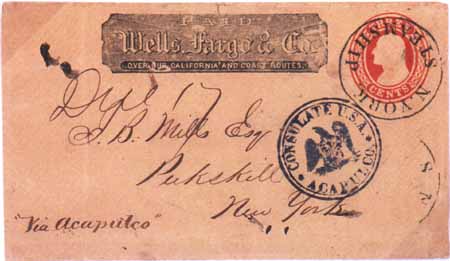 PAID
Wells, Fargo & Co.
OVER OUR CALIFORNIA AND COAST ROUTES.
THREE
CENTS
N. YORK STEAMSHIP
CONSULATE U.S.A.
ACAPULCO
J. B. Mills Esq
Pukskill
New York
"Via Acapulco"